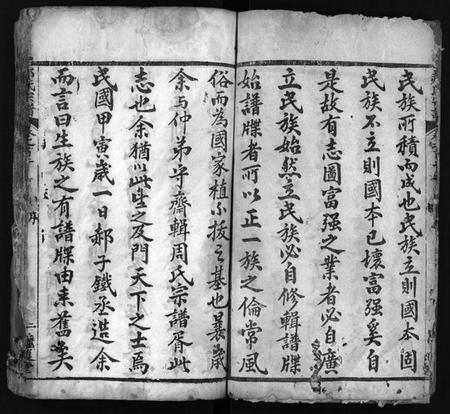 民族所積而成也民族立則國本固
民族不立則國本已壞富强奚自
是故有志圖富强之業者必自廣
立民族始然立民族必自修輯譜牒
始譜牒者所以正一族之倫常風
俗而為國家植不拔之基也曩歲
余与仲弟平齋輯周氏宗譜胥此
志也余猶以此望之及門天下之士焉
民國甲寅歲一日郝子鐵丞造余
而言曰生族之有譜牒由来舊矣